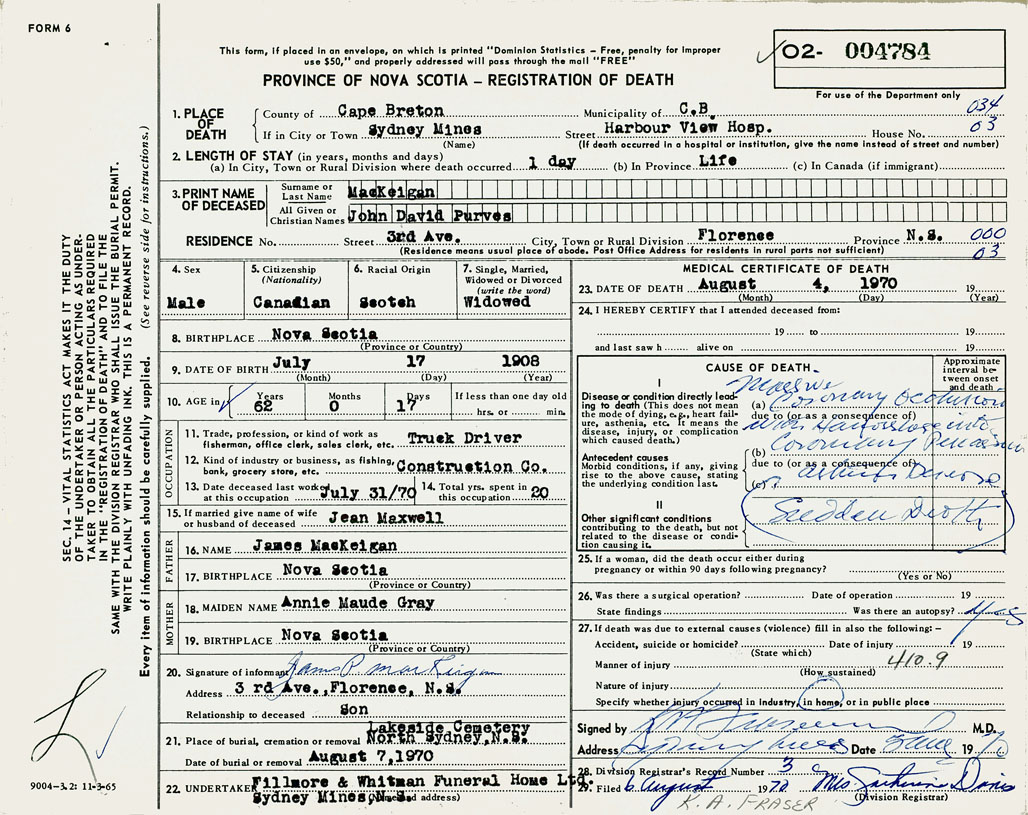 FORM 6
This form, if placed in an envelope, on which is printed "Dominion Statistics – Free, penalty for improper
use $50," and properly addressed will pass through the mail "FREE"
PROVINCE OF NOVA SCOTIA – REGISTRATION OF DEATH
02- 004784
For use of the Department only
SEC. 14 – VITAL STATISTICS ACT MAKES IT THE DUTY
OF THE UNDERTAKER OR PERSON ACTING AS UNDER-
TAKER TO OBTAIN ALL THE PARTICULARS REQUIRED
IN THE "REGISTRATION OF DEATH" AND TO FILE THE
SAME WITH THE DIVISION REGISTRAR WHO SHALL ISSUE THE BURIAL PERMIT.
WRITE PLAINLY WITH UNFADING INK. THIS IS A PERMANENT RECORD.
Every item of information should be carefully supplied. (See reverse side for instructions.)
1. PLACE OF DEATH
County of Cape Breton Municipality of C.B. 034
If in City or Town Sydney Mines Street Harbour View Hosp. House No. 03
(Name) (If death occurred in a hospital or institution, give the name instead of street and number)
2. LENGTH OF STAY (in years, months and days)
(a) In City, Town or Rural Division where death occurred 1 day (b) In Province Life (c) In Canada (if immigrant)
3. PRINT NAME OF DECEASED
Surname or Last Name MacKeigan
All Given or Christian Names John David Purves
RESIDENCE No. Street 3rd Ave. City, Town or Rural Division Florence Province N.S. 000
(Residence means usual place of abode. Post Office Address for residents in rural parts not sufficient) 03
4. Sex
Male
5. Citizenship (Nationality)
Canadian
6. Racial Origin
Scotch
7. Single, Married, Widowed or Divorced (write the word)
Widowed
8. BIRTHPLACE Nova Scotia
(Province or Country)
9. DATE OF BIRTH July 17 1908
(Month) (Day) (Year)
10. AGE in Years Months Days If less than one day old
62 0 17 hrs. or min.
OCCUPATION
11. Trade, profession, or kind of work as fisherman, office clerk, sales clerk, etc. Truck Driver
12. Kind of industry or business, as fishing, bank, grocery store, etc. Construction Co.
13. Date deceased last worked at this occupation July 31/70
14. Total yrs. spent in this occupation 20
15. If married give name of wife or husband of deceased Jean Maxwell
FATHER
16. NAME James MacKeigan
17. BIRTHPLACE Nova Scotia
(Province or Country)
MOTHER
18. MAIDEN NAME Annie Maude Gray
19. BIRTHPLACE Nova Scotia
(Province or Country)
20. Signature of informant James P MacKeigan
Address 3 rd Ave.,Florence, N.S.
Relationship to deceased Son
21. Place of burial, cremation or removal Lakeside Cemetery
North Sydney,N.S.
Date of burial or removal August 7,1970
22. UNDERTAKER Fillmore & Whitman Funeral Home Ltd.
Sydney Mines,N.S. (Name and address)
9004-3.2: 11-3-65
MEDICAL CERTIFICATE OF DEATH
23. DATE OF DEATH August 4, 1970 19
(Month) (Day) (Year)
24. I HEREBY CERTIFY that I attended deceased from:
19 to 19
and last saw h alive on 19
CAUSE OF DEATH
Approximate interval between onset and death
I
Disease or condition directly leading to death (This does not mean the mode of dying, e.g., heart failure, asthenia, etc. It means the disease, injury, or complication which caused death.)
Massive
(a) Coronary Occlusion
due to (or as a consequence of)
with Haemorrhage into
(b) Coronary
due to (or as a consequence of)
(c) Disease
Antecedent causes
Morbid conditions, if any, giving rise to the above cause, stating the underlying condition last.
II
Other significant conditions contributing to the death, but not related to the disease or condition causing it.
Sudden Death
25. If a woman, did the death occur either during pregnancy or within 90 days following pregnancy?
(Yes or No)
26. Was there a surgical operation? Date of operation 19
State findings Was there an autopsy? Yes
27. If death was due to external causes (violence) fill in also the following: –
Accident, suicide or homicide? Date of injury 19
(State which)
Manner of injury 410.9
(How sustained)
Nature of injury
Specify whether injury occurred in industry, in home, or in public place
Signed by M.D.
Address Sydney Mines Date 5 Aug 1970
28. Division Registrar's Record Number 3
29. Filed 6 August 1970 Mrs Davis
(Division Registrar)
K. A. FRASER